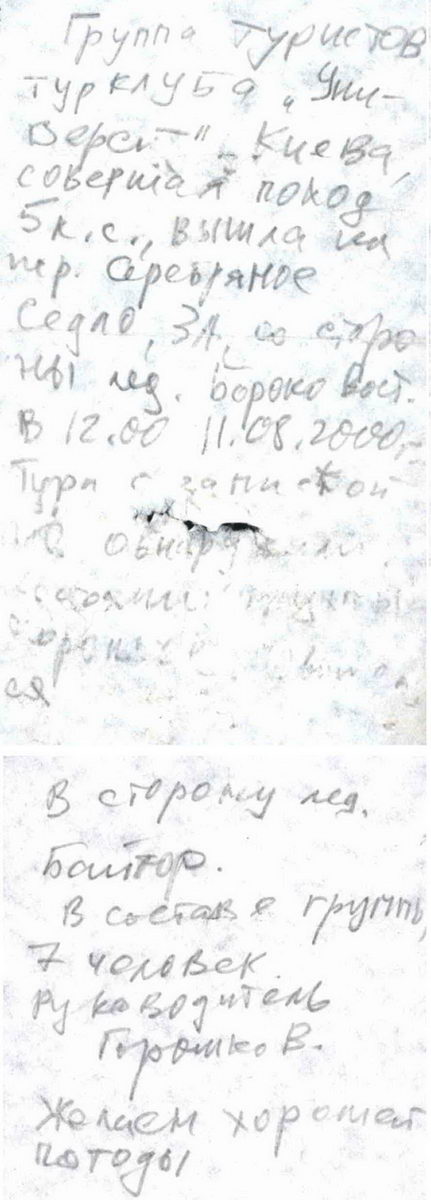 Группа туристов
турклуба „Уни-
верси-т" г. Киева,
совершая поход
5 к.с., вышла на
пер. Серебряное
Седло, 3А, со сторо
ны лед. Бороко Вост.
В 12.00 11.08.2000.
Тура с запиской
обнаружили
ся
В сторону лед.
Байтор.
В составе группы
7 человек.
Руководитель
Горошко В.
Желаем хорошей
погоды